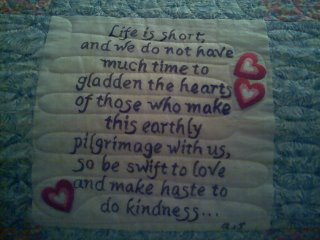 Life is short,
and we do not have
much time to
gladden the hearts
of those who make
this earthly
pilgrimage with us,
so be swift to love
and make haste to
do kindness...